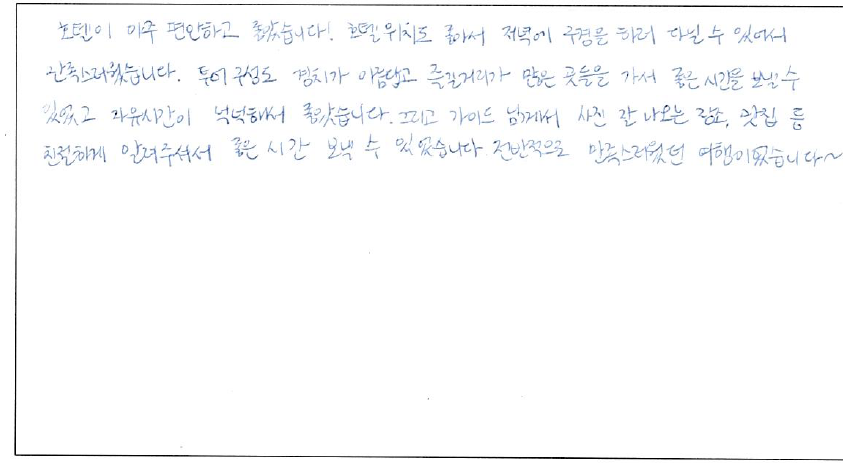 호텔이 아주 편안하고 좋았습니다! 호텔 위치도 좋아서 저녁에 구경을 하러 다닐 수 있어서
만족스러웠습니다. 투어 구성도 경치가 아름답고 즐길거리가 많은 곳들을 가서 좋은 시간을 보낼 수
있었고 자유시간이 넉넉해서 좋았습니다. 그리고 가이드 님께서 사진 잘 나오는 장소, 맛집 등
친절하게 알려주셔서 좋은 시간 보낼 수 있었습니다 전반적으로 만족스러웠던 여행이었습니다~